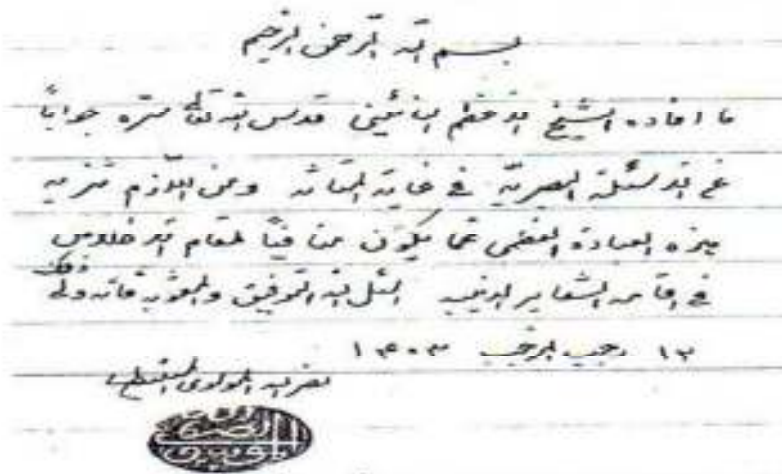 بسم الله الرحمن الرحيم
ما افاده الشيخ الاعظم النائيني قدس الله تعالى سره جواباً
عن الاسئلة البصرية في غاية المتانة ومن اللازم تنزيه
هذه العبادة العظمى عما يكون منافياً لمقام الاخلاص
في اقامة الشعاير الدينية اسئل الله التوفيق والمعونة فانه ولي ذلك
١٢ رجب المرجب ١٤٠٣
نصر الله الموسوي المستنبط